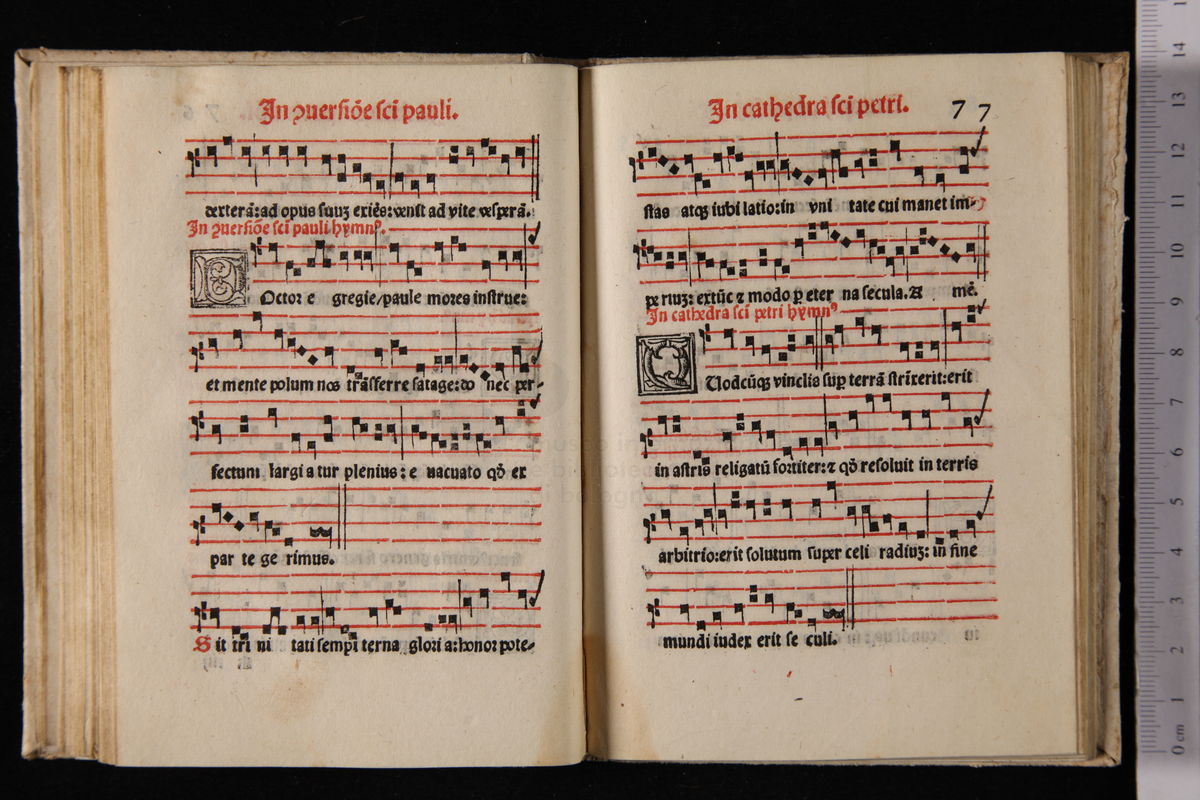 In ꝯuersiõe sci pauli.
dexterã:ad opus suuʒ exiẽs:venit ad vite vesperã.
In ꝯuersiõe sci pauli hymnꝰ.
DOctor e gregie/paule mores instrue:
et mente polum nos trãsferre satage:do nec per-
fectum largi a tur plenius: e uacuato qð ex
par te ge rimus.
Sit tri ni tati sempi terna glori a:honor pote-
In cathedra sci petri. 77
stas atqʒ iubi latio:in vni tate cui manet im-
pe riuʒ: extũc ⁊ modo ꝑ eter na secula. A mẽ.
In cathedra sci petri hymnꝰ
QUodcũqʒ vinclis suꝑ terrã strixerit:erit
in astris religatũ fortiter:⁊ qð resoluit in terris
arbitrio:erit solutum super celi radiuʒ: in fine
mundi iudex erit se culi.
0 cm 1 2 3 4 5 6 7 8 9 10 11 12 13 14